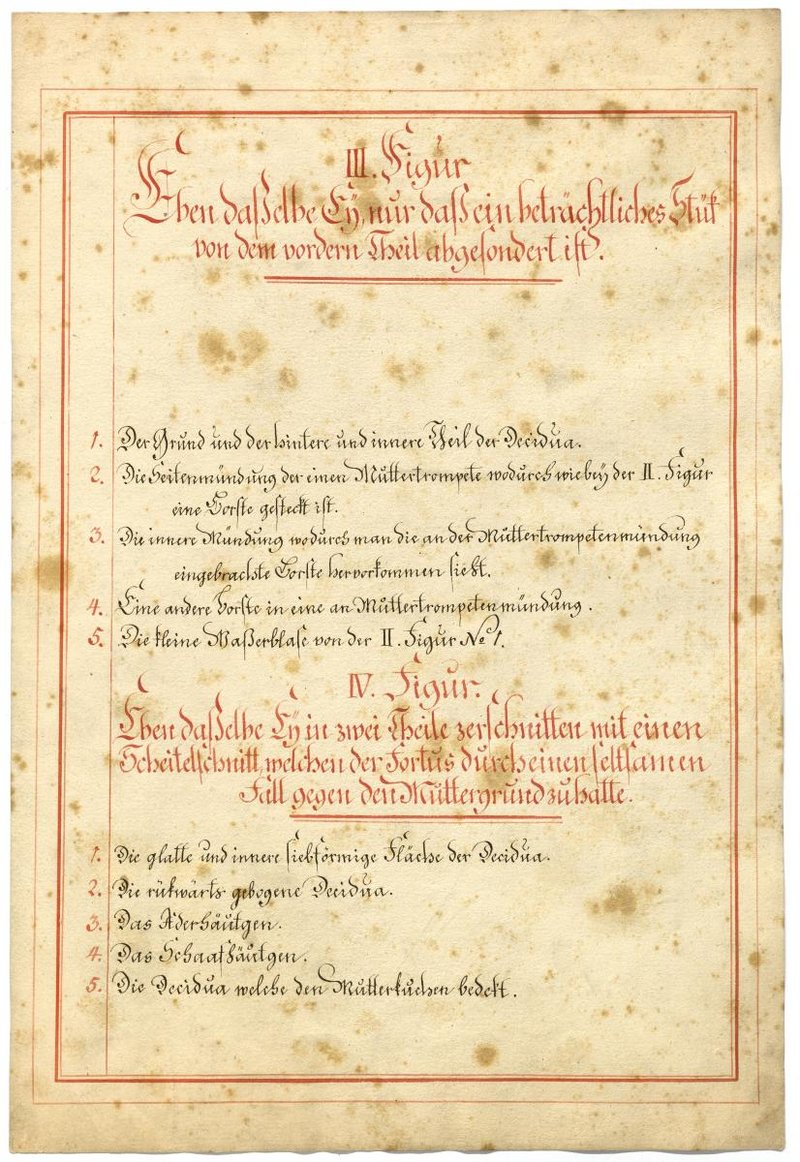 III. Figur
Eben daßelbe Eÿ, nur daß ein beträchtliches Stük
von dem vordern Theil abgesondert ist.
1. Der Grund und der hintere und innere Theil der Decidua.
2. Die Seitenmündung der einen Muttertrompete wodurch wie beÿ der II. Figur
eine Borste gesteckt ist.
3. Die innere Mündung wodurch man die an der Muttertrompetenmündung
eingebrachte Borste hervorkommen sieht.
4. Eine andere Borste in eine an Muttertrompetenmündung.
5. Die kleine Waßerblase von der II. Figur No 1.
IV. Figur.
Eben daßelbe Eÿ in zwei Theile zerschnitten mit einen
Scheitelschnitt, welchen der Fortus durch einen seltsamen
Fall gegen den Muttergrund zu hatte.
1. Die glatte und innere siebförmige Fläche der Decidua.
2. Die rükwärts gebogene Decidua.
3. Das Aderhäutgen.
4. Das Schaafhäutgen.
5. Die Decidua welche den Mutterkuchen bedekt.